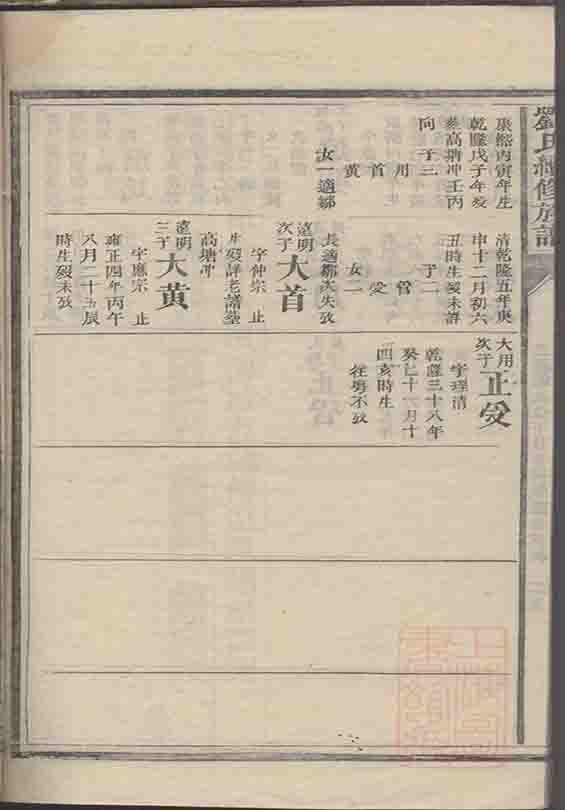 劉氏續修族譜
康熙丙寅年生
乾隆戊子年歿
葬高塘冲壬丙
向 子三
用
首
黄
女一適鄒
清乾隆五年庚
申十二月初六
丑時生歿未詳
子二
管
受
女二
長適鄒次失攷
遠明
次子
大首
字仲宗 止
生歿詳老譜塟
高塘冲
遠明
三子
大黄
字應宗 止
雍正四年丙午
八月二十五辰
時生歿未攷
大用
次子
正受
字理清
乾隆三十八年
癸巳十一月十
四亥時生
往粤不攷
上海圖
書館藏